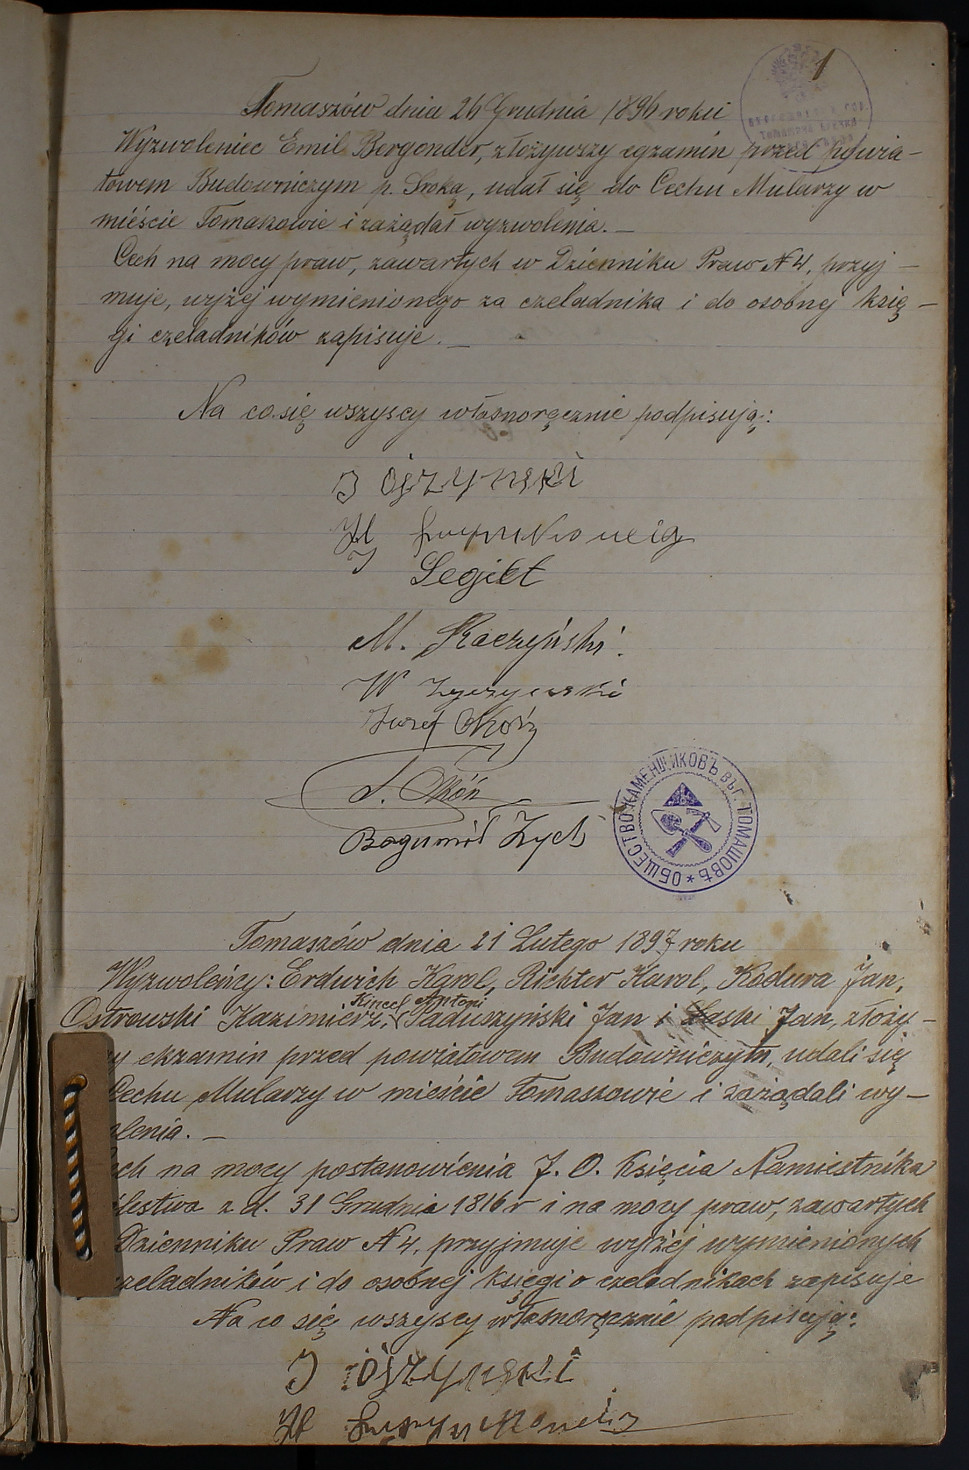 1
Tomaszów dnia 26 Grudnia 1896 roku
Wyzwoleniec Emil Bergender, złożywszy egzamin przed powia-
towem Budowniczym p. Sroką, udał się do Cechu Mularzy w
mieście Tomaszowie i zażądał wyzwolenia. —
Cech na mocy praw, zawartych w Dzienniku Praw N 4, przyj-
muje, wyżej wymienionego za czeladnika i do osobnej księ-
gi czeladników zapisuje. —
Na co się wszyscy własnoręcznie podpisują:
J
Segiet
M. Kaczyński.
W
Józef
J. Okón
Bogumił Zych
ОБЩЕСТВО КАМЕНЩИКОВЪ ВЪ Г. ТОМАШОВѢ *
Tomaszów dnia 21 Lutego 1897 roku
Wyzwoleńcy: Erdwich Karol, Richter Karol, Kadura Jan,
Kincel Antoni
Ostrowski Kazimierz, Paduszyński Jan i Laski Jan, złoży-
y ekzamin przed powiatowem Budowniczym, udali się
Cechu Mularzy w mieście Tomaszowie i zażądali wy-
olenia. —
ch na mocy postanowienia J. O. Księcia Namiestnika
lestwa z d. 31 Grudnia 1816 r i na mocy praw, zawartych
Dzienniku Praw N 4, przyjmuje wyżej wymienionych
czeladników i do osobnej księgi o czeladnikach zapisuje
Na co się wszyscy własnoręcznie podpisują:
J